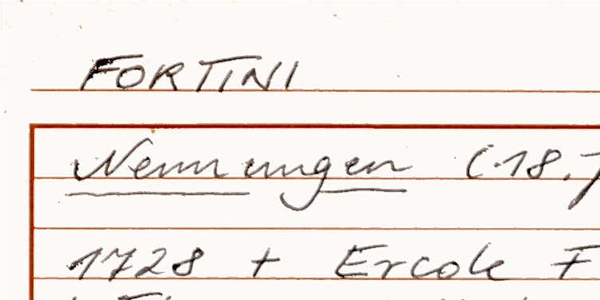 FORTINI
Nennungen (18.J
1728 + Ercole F